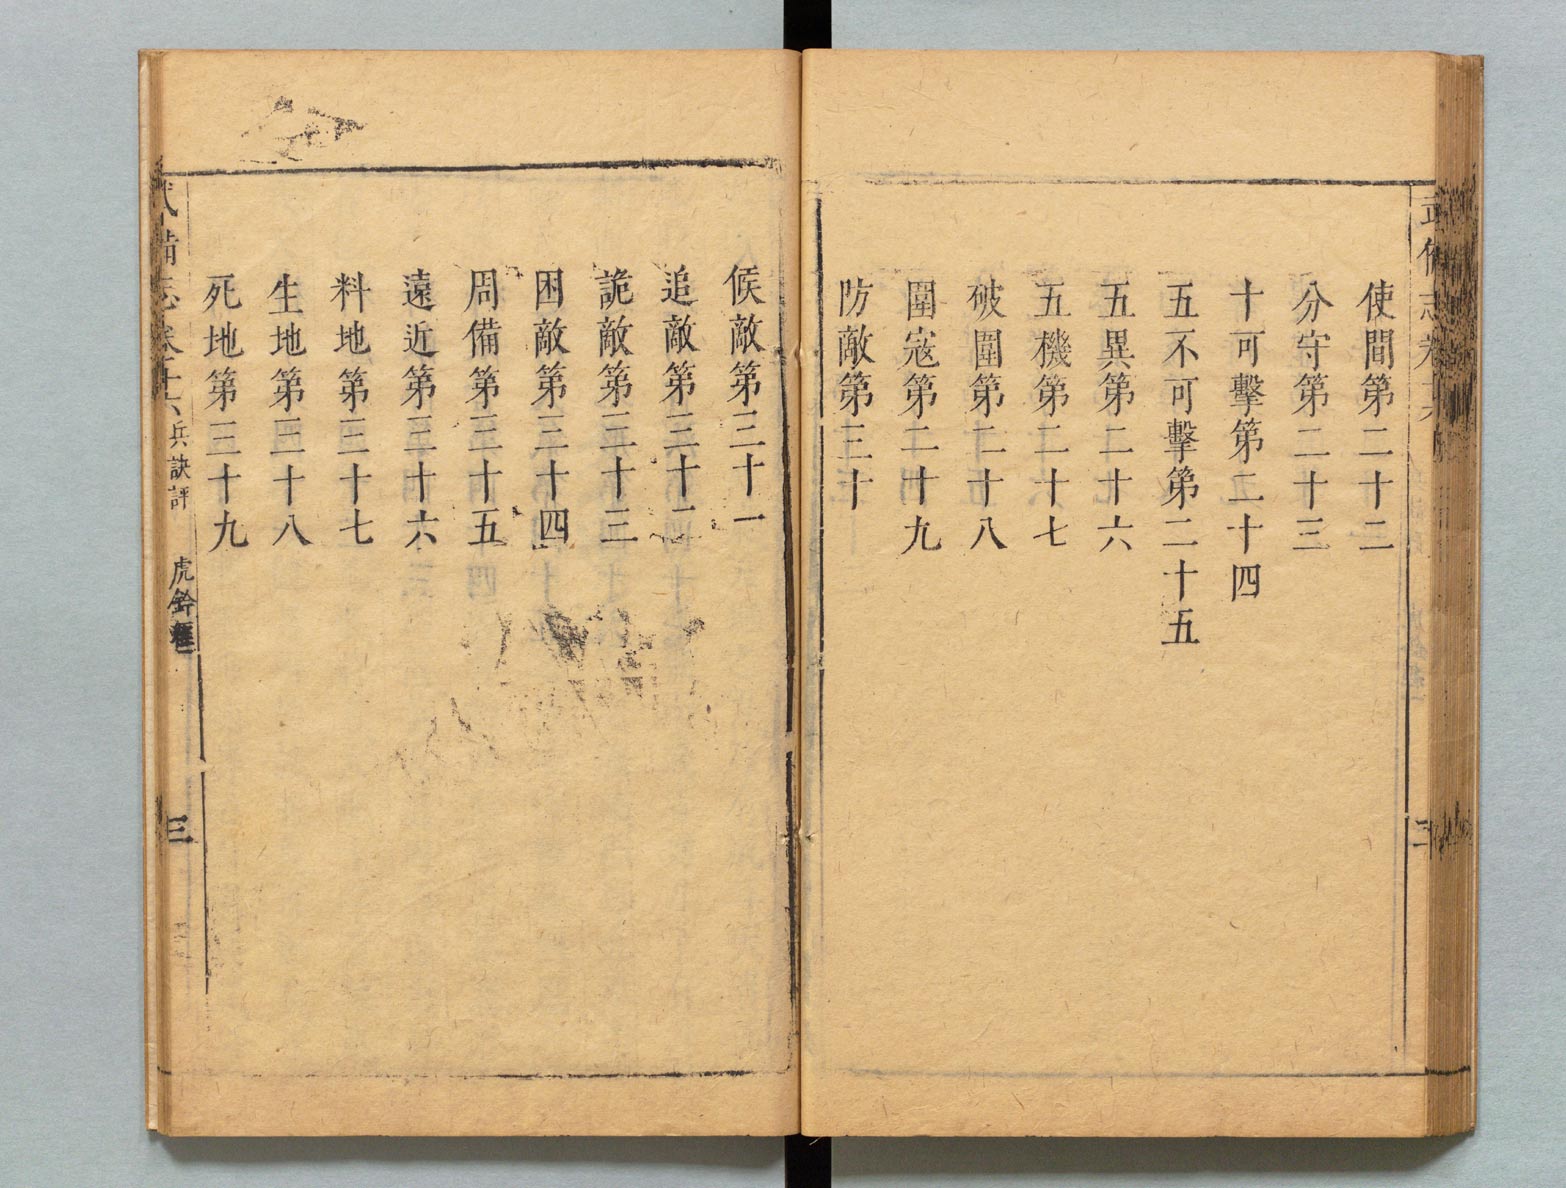 使間第二十二
分守第二十三
十可擊第二十四
五不可擊第二十五
五異第二十六
五機第二十七
破圍第二十八
圍寇第二十九
防敵第三十
候敵第三十一
追敵第三十二
詭敵第三十三
困敵第三十四
周備第三十五
遠近第三十六
料地第三十七
生地第三十八
死地第三十九
武備志卷十六 兵訣評 虎鈐經 三